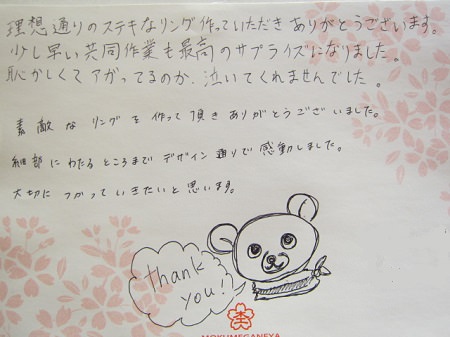 理想通りのステキなリング作っていただきありがとうございます。
少し早い共同作業も最高のサプライズになりました。
恥かしくてアガってるのか、泣いてくれませんでした。
素敵なリングを作って頂きありがとうございました。
細部にわたるところまでデザイン通りで感動しました。
大切につかっていきたいと思います。
thank
you!
MOKUMEGANEYA